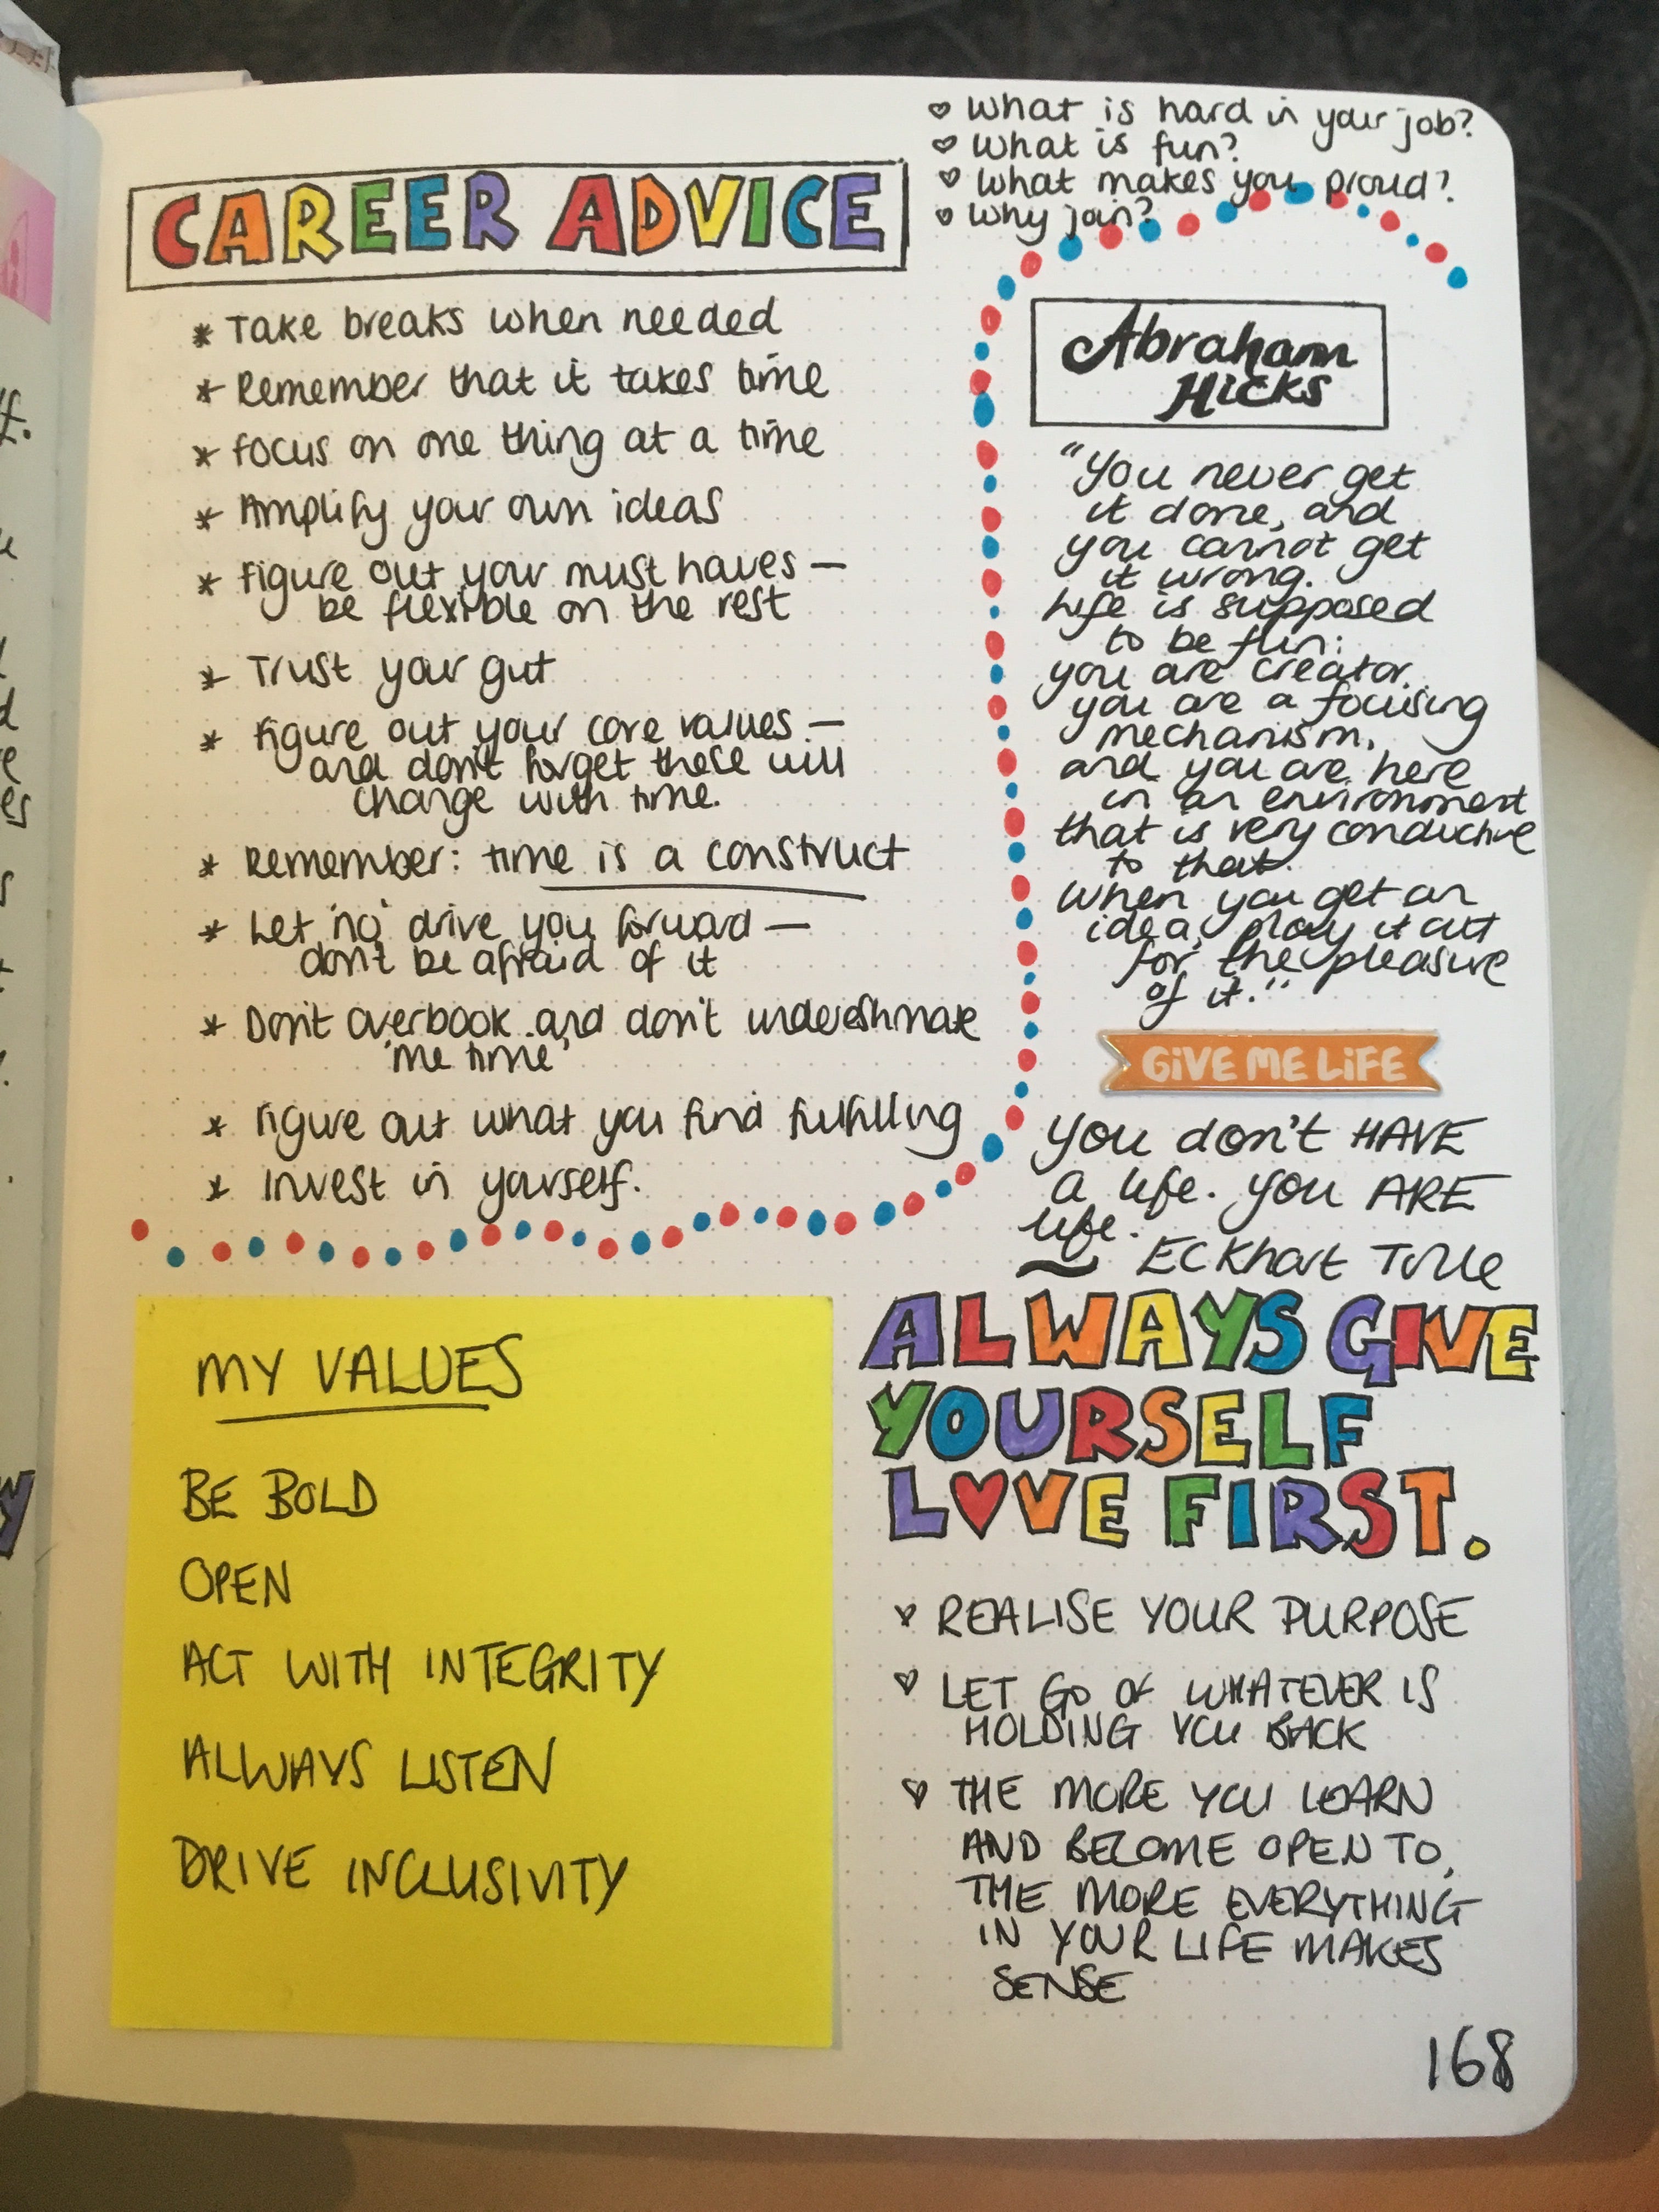 ♡ What is hard in your job?
♡ What is fun?
♡ What makes you proud?
♡ Why join?
CAREER ADVICE
* Take breaks when needed
* Remember that it takes time
* focus on one thing at a time
* Amplify your own ideas
* Figure out your must haves —
be flexible on the rest
* Trust your gut
* Figure out your core values —
and don't forget these will
change with time.
* Remember: time is a construct
* Let 'no' drive you forward —
don't be afraid of it
* Don't overbook and don't underestimate
'me time'
* Figure out what you find fulfilling
* Invest in yourself.
Abraham
Hicks
"You never get
it done, and
you cannot get
it wrong.
Life is supposed
to be fun:
you are creator.
you are a focusing
mechanism,
and you are here
in an environment
that is very conductive
to that.
When you get an
idea, play it out
for the pleasure
of it."
GIVE ME LIFE
You don't HAVE
a life. You ARE
life.
Eckhart Tolle
MY VALUES
BE BOLD
OPEN
ACT WITH INTEGRITY
ALWAYS LISTEN
DRIVE INCLUSIVITY
ALWAYS GIVE
YOURSELF
L♥VE FIRST.
♡ REALISE YOUR PURPOSE
♡ LET GO OF WHATEVER IS
HOLDING YOU BACK
♡ THE MORE YOU LEARN
AND BECOME OPEN TO,
THE MORE EVERYTHING
IN YOUR LIFE MAKES
SENSE
168